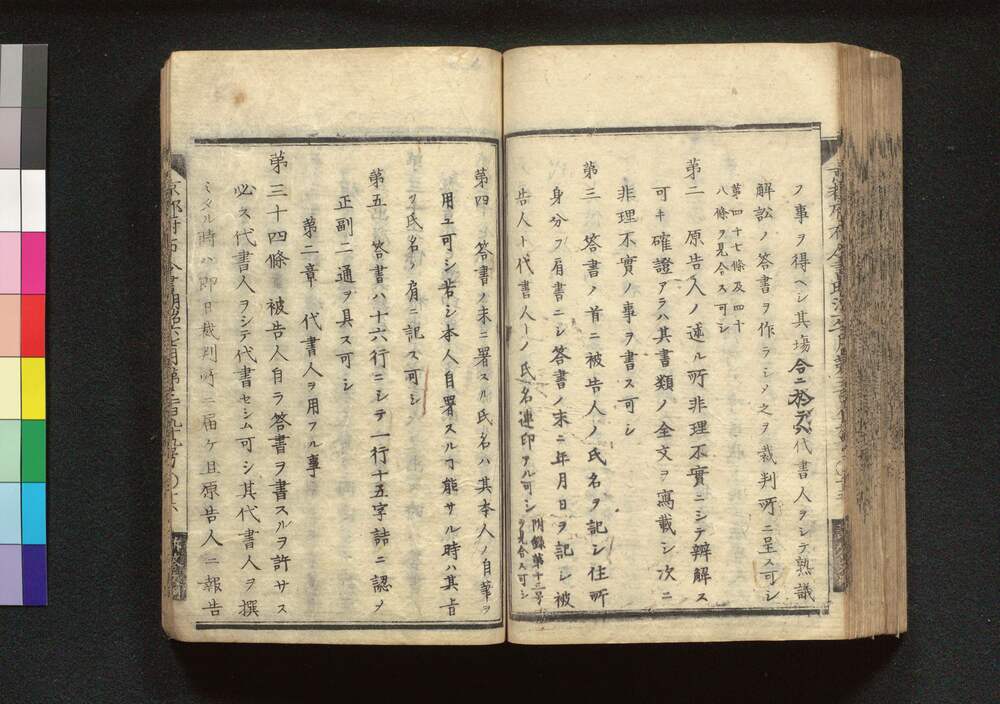 ノ事ヲ得ヘシ其塲合ニ於テハ代書人ヲシテ熟議
解訟ノ答書ヲ作ラシメ之ヲ裁判所ニ呈ス可シ
第四十七條及四十
八條ヲ見合ス可シ
第二 原告人ノ述ル所非理不實ニシテ辨解ス
可キ確證アラハ其書類ノ全文ヲ寫載シ次ニ
非理不實ノ事ヲ書ス可シ
第三 答書ノ首ニ被告人ノ氏名ヲ記シ住所
身分ヲ肩書ニシ答書ノ末ニ年月日ヲ記シ被
告人ト代書人トノ氏名連印アル可シ
附錄第十三号
ヲ見合ス可シ
第四 答書ノ末ニ署スル氏名ハ其本人ノ自筆ヲ
用ユ可シ若シ本人自署スルヿ能サル時ハ其旨
ヲ氏名ノ肩ニ記ス可シ
第五 答書ハ十六行ニシテ一行十五字詰ニ認メ
正副二通ヲ具ス可シ
第二章 代書人ヲ用フル事
第三十四條 被告人自ラ答書ヲ書スルヲ許サス
必ス代書人ヲシテ代書セシム可シ其代書人ヲ撰
ミタル時ハ即日裁判所ニ届ケ且原告人ニ報告